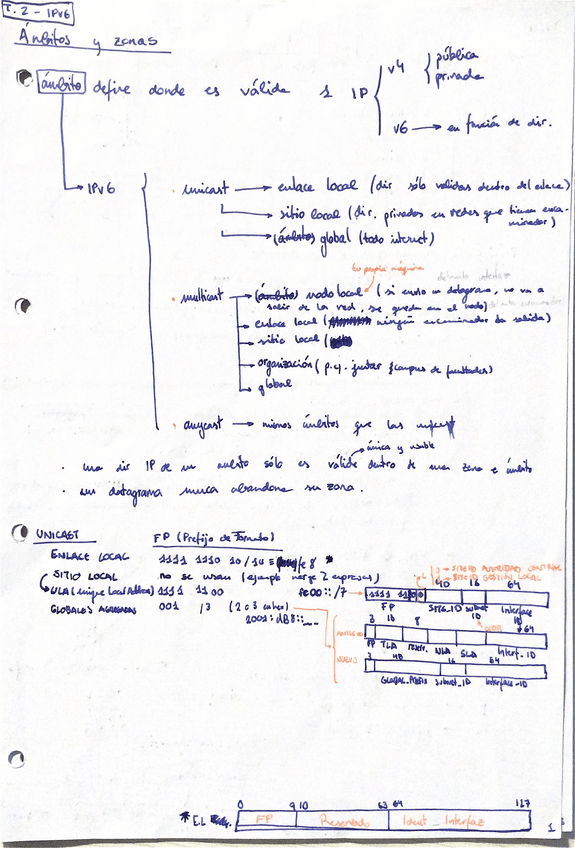 T.2 - IPv6
Ámbitos y zonas
ámbito define donde es válida 1 IP
v4
pública
privada
v6 → en función de dir.
IPv6
unicast → enlace local (dir sólo validas dentro del enlace)
→ sitio local (dir. privadas en redes que tienen enca-
minador)
→ (ámbitos) global (todo internet)
tu propia máquina
multicast → (ámbitos) nodo local (si envío un datagrama, no va a
salir de la red, se queda en el nodo)
→ enlace local (ningún encaminador da salida)
→ sitio local (
→ organización (p.ej. juntar campus de facultades)
→ global
anycast → mismos ámbitos que las unicast
única y visible
· una dir IP de un ambito sólo es válida dentro de una zona e ámbito
· un datagrama nunca abandona su zona.
UNICAST
FP (Prefijo de Formato)
ENLACE LOCAL 1111 1110 10 /10 = fe8 *
SITIO LOCAL no se usan
ULA (Unique Local Address) 1111 1100 FC00::/7
GLOBALES AGREGADAS 001 /3 (2 o 3 antes)
2001:dB8::__
0 → SITEID AUTORIDAD CENTRAL
1 → SITEID GESTIÓN LOCAL
40 16 64
1111 110
FP SITE_ID subnet ID Interface ID
3 13 8 64
FP TLA reserv. NLA SLA Interf_ID
3 16 64
GLOBAL_PREFIX Subnet_ID Interface_ID
0 9 10 63 64 127
* E.L FP Reservado Ident_Interfaz
1